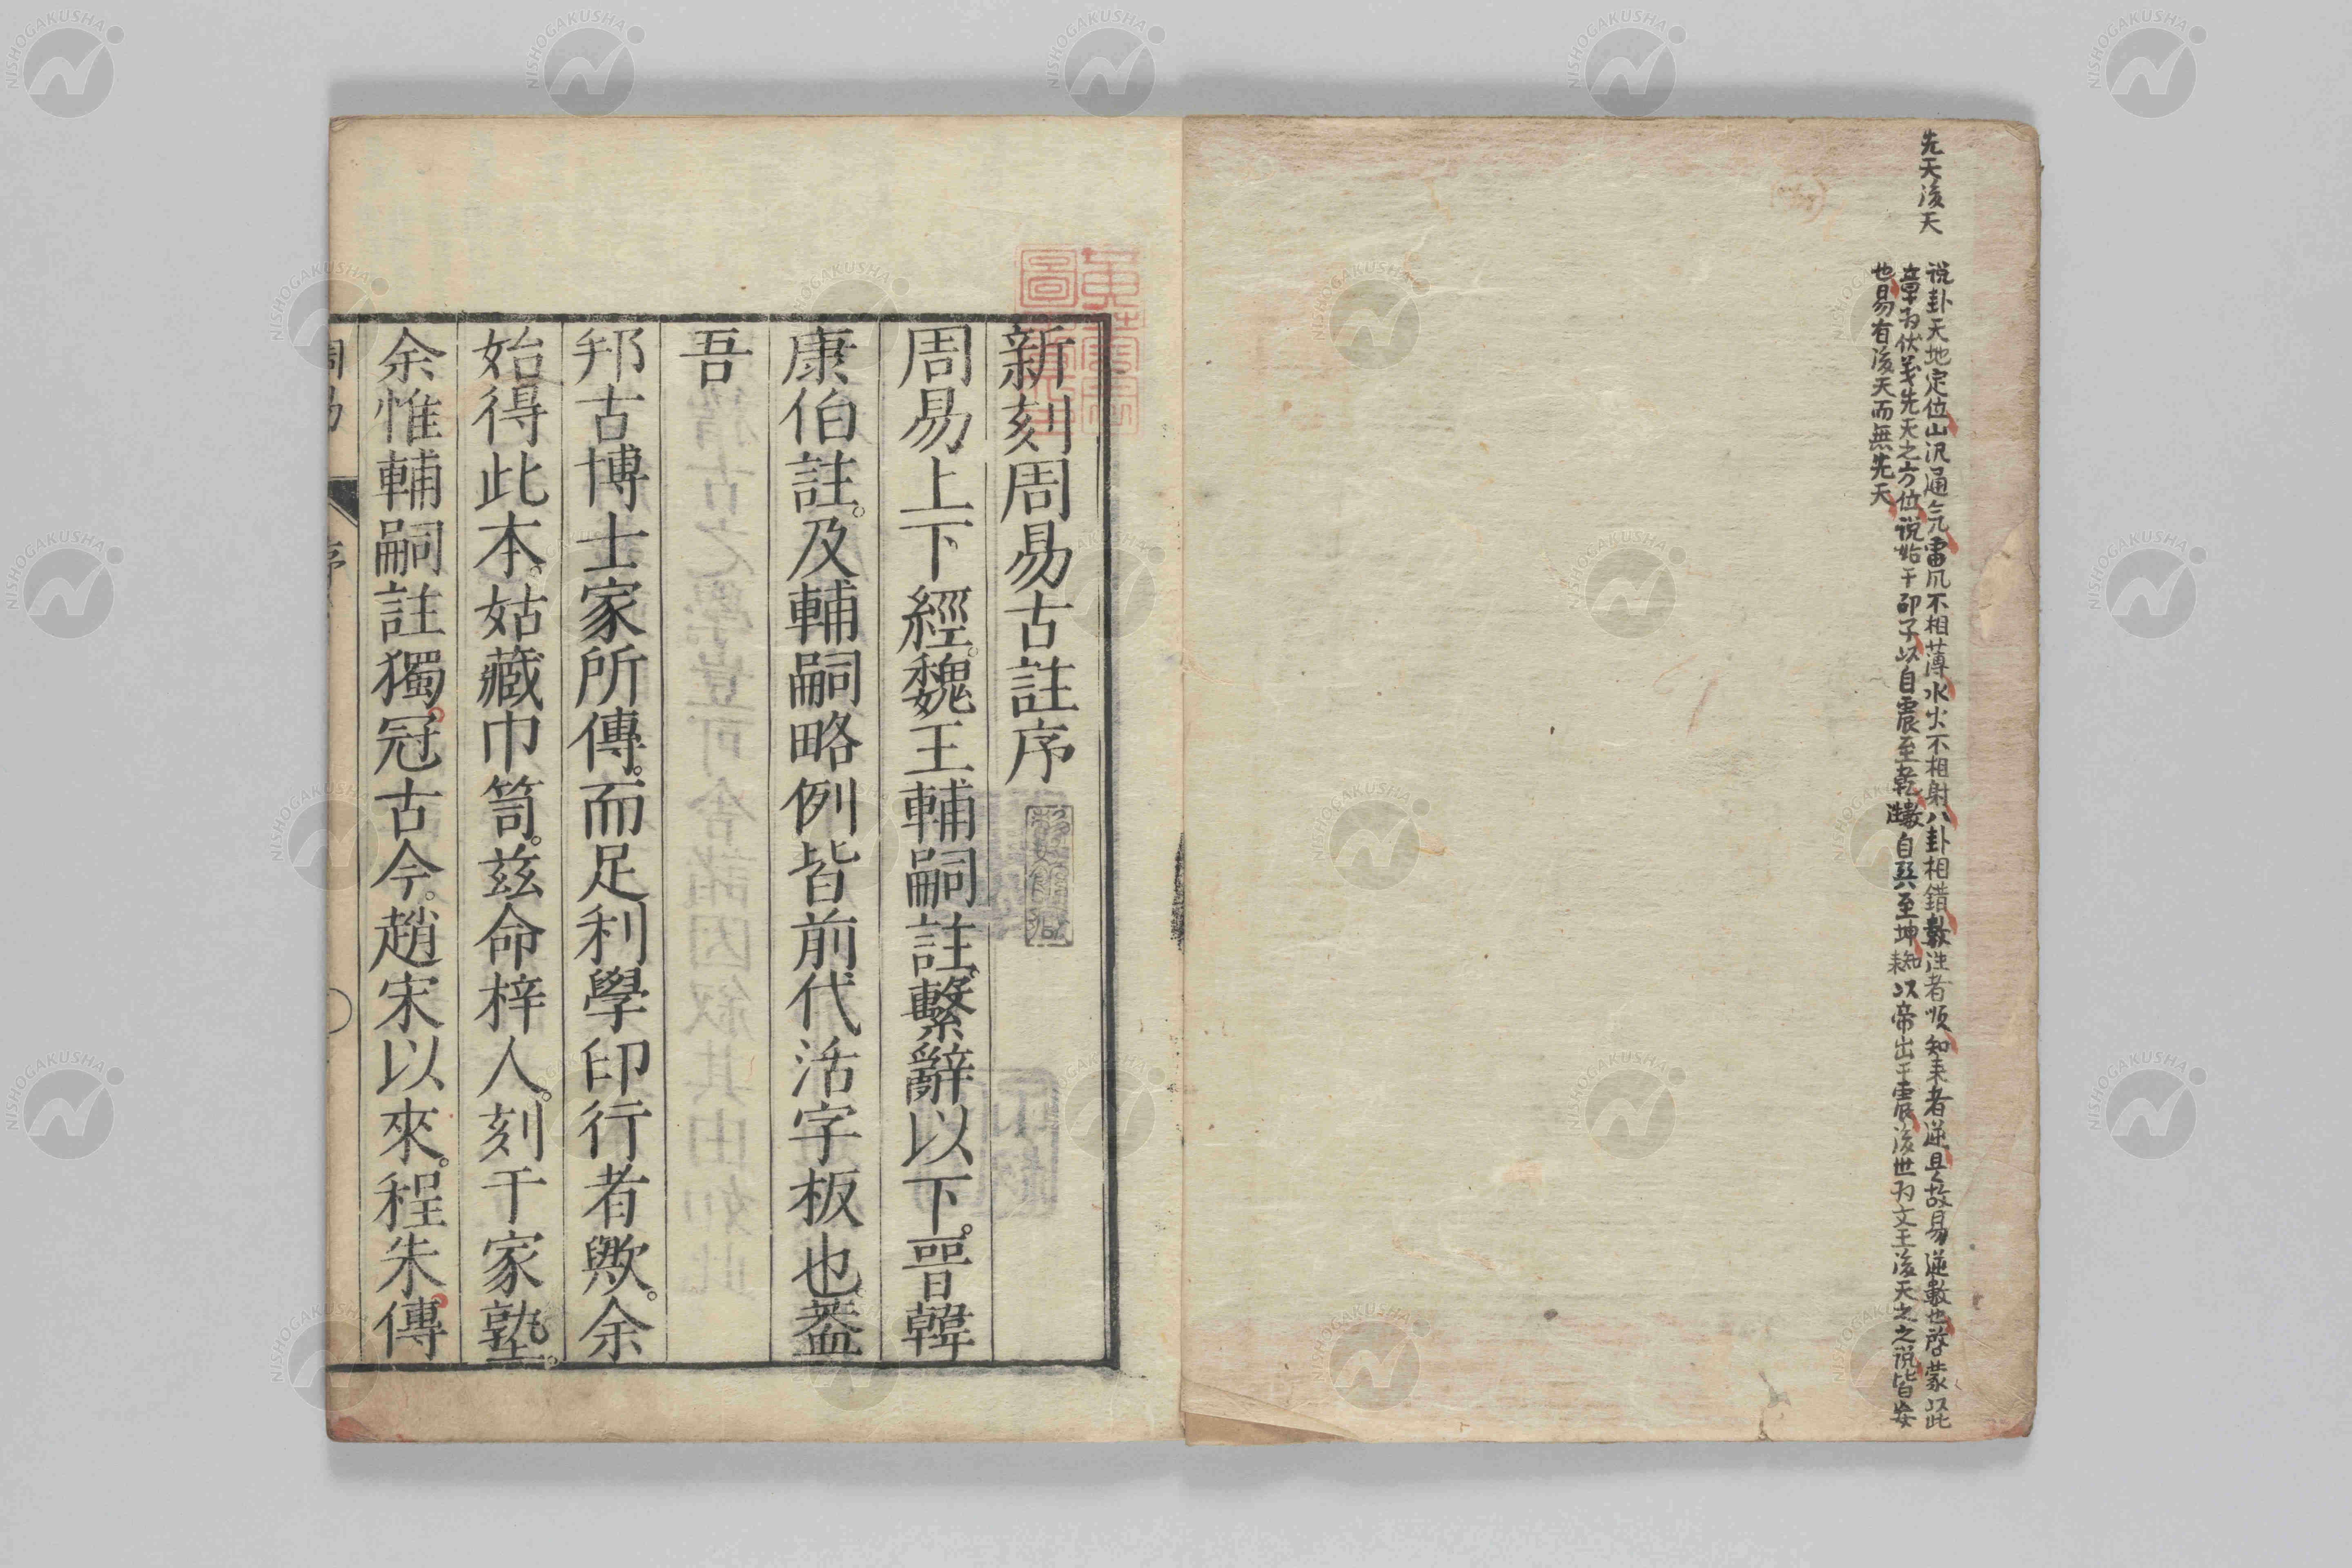 先天後天
説卦天地定位山沢通气雷风不相薄水火不相射八卦相錯数往者順知来者逆是故易逆數也啓蒙以此
章为伏羲先天之方位説始于邵子以自震至乾數往自巽至坤知来以帝出于震後世为文王後天之之説皆妄
也易有後天而無先天
新刻周易古註序
周易上下經。魏王輔嗣註、繫辭以下。晉韓
康伯註。及輔嗣略例皆前代活字板也。蓋
吾
邦古博士家所傳。而足利學印行者歟。余
始得此本。姑藏巾笥。茲命梓人。刻于家塾。
余惟輔嗣註獨。冠古今。趙宋以來。程朱。傳
周易
序
NISHOGAKUSHA